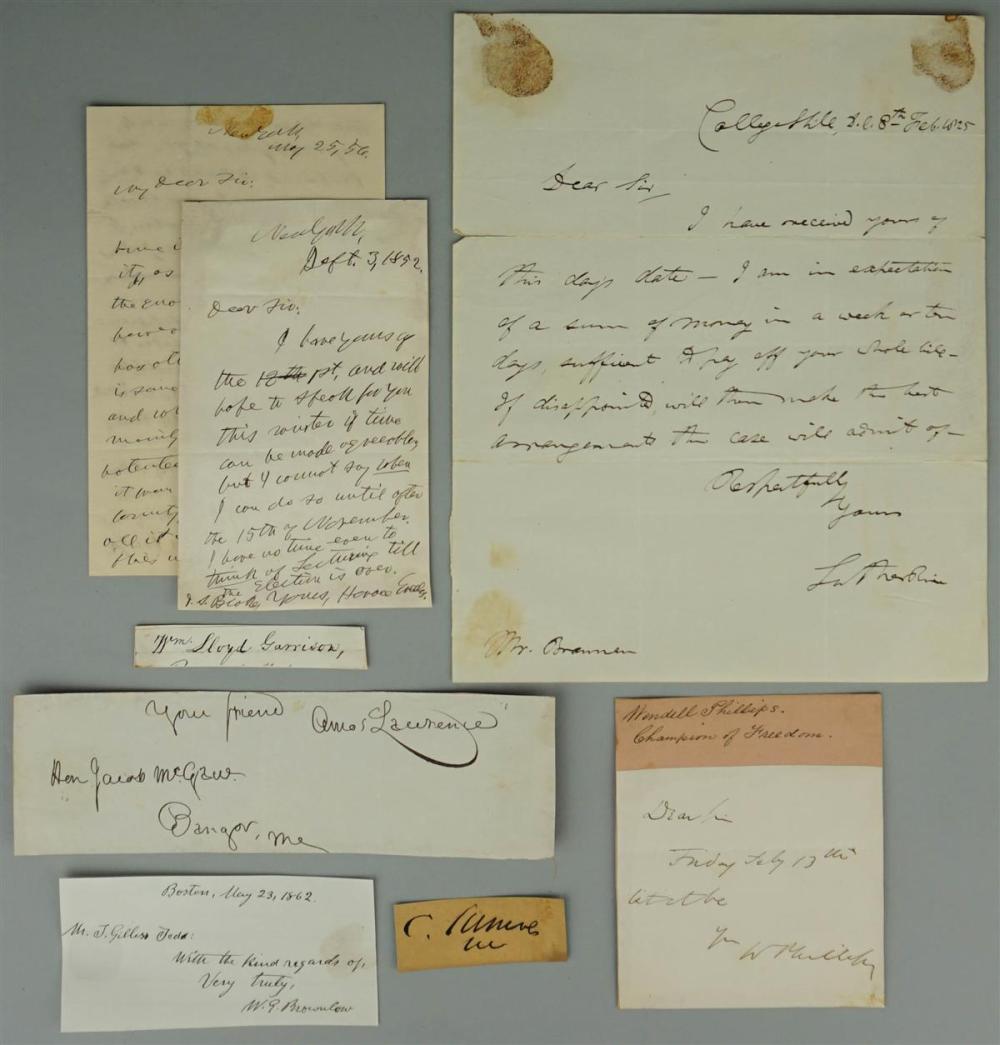 New York,
May 25, 56.
My dear Sir:
the
have
has
is
and
mainly
it
all it
New York,
Sept. 3, 1852.
Dear Sir:
I have yours of
the 12th 1st, and will
hope to speak for you
this winter if time
can be made agreeable,
but I cannot say when
I can do so until after
the 15th of November.
I have no time even to
think of Lecturing till
the Election is over.
Yours, Horace Greeley
Collegeville, 8th Feb. 1825
Dear Sir,
I have received yours of
this days date — I am in expectation
of a sum of money in a week or ten
days, sufficient to pay off your whole bill—
If disappointed, will then make the best
arrangements the case will admit of—
Respectfully
Yours
Luther Rice
Mr. Brannan
Wm. Lloyd Garrison,
Your friend Amos Lawrence
Hon Jacob McGaw.
Bangor, Me
Boston, May 23, 1862.
With the kind regards of,
Very truly,
W. G. Brownlow
C.
Wendell Phillips.
Champion of Freedom.
Dear Sir
Friday Feby 13th
Yr
W Phillips